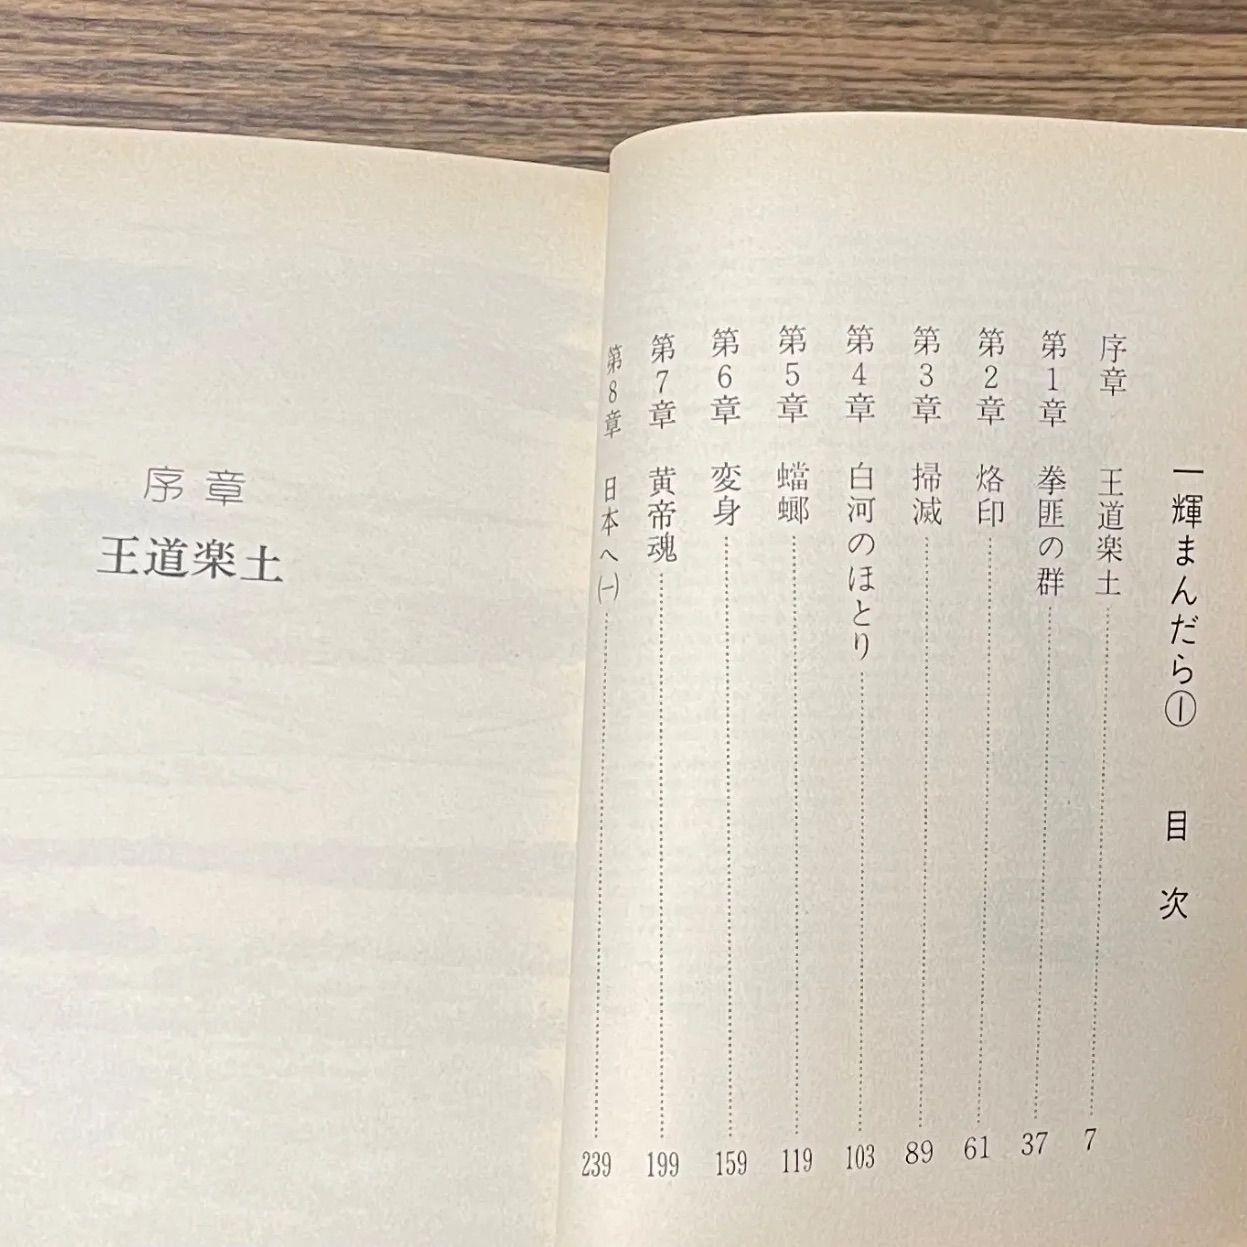 一輝まんだら① 目次
序章 王道楽土 7
第1章 拳匪の群 37
第2章 烙印 61
第3章 掃滅 89
第4章 白河のほとり 103
第5章 蟷螂 119
第6章 変身 159
第7章 黄帝魂 199
第8章 日本へ(一) 239
序章
王道楽土